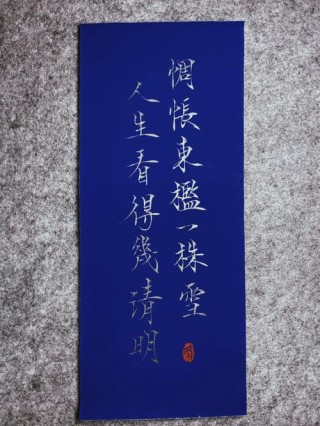 惆悵東欄一株雪
人生看得幾清明